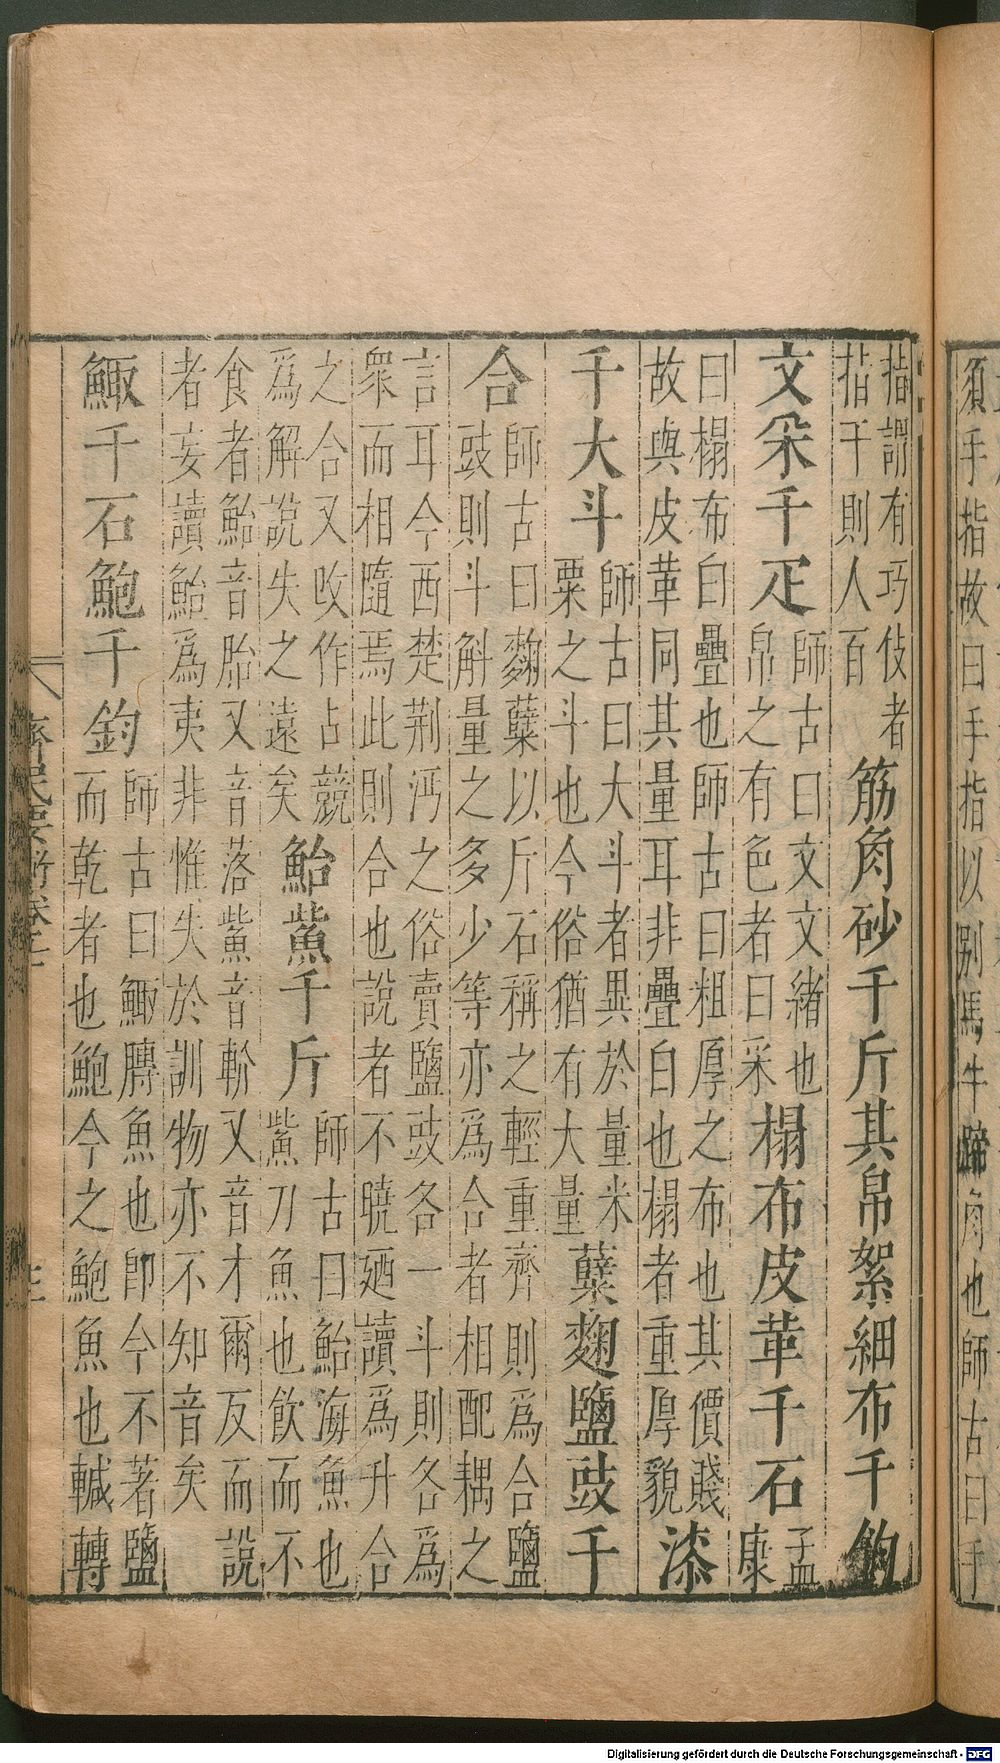 須手指故曰手指以別馬牛蹄角也師古曰手
指謂有巧伎者
指千則人百
筋角砂千斤其帛絮細布千鈞
文采千疋
師古曰文文緒也
帛之有色者曰采
榻布皮革千石
孟
康
曰榻布白疊也師古曰粗厚之布也其價賤
故與皮革同其量耳非疊白也榻者重厚貌
漆
千大斗
師古曰大斗者異於量米
粟之斗也今俗猶有大量
櫱麴鹽豉千
合
師古曰麴櫱以斤石稱之輕重齊則爲合鹽
豉則斗斛量之多少等亦爲合者相配耦之
言耳今西楚荆沔之俗賣鹽豉各一斗則各爲
衆而相隨焉此則合也說者不曉廼讀爲升合
之合又改作占競
爲解說失之遠矣
鮐鮆千斤
師古曰鮐海魚也
鮆刀魚也飲而不
食者鮐音胎又音落鮆音䡄又音才爾反而說
者妄讀鮐爲夷非惟失於訓物亦不知音矣
鯫千石鮑千鈞
師古曰鯫膞魚也卽今不著鹽
而乾者也鮑今之鮑魚也
齊民要術卷之七
Digitalisierung gefördert durch die Deutsche Forschungsgemeinschaft - DFG